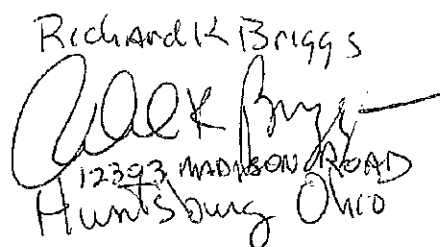 Richard K Briggs
12393 MADISON ROAD
Huntsburg Ohio